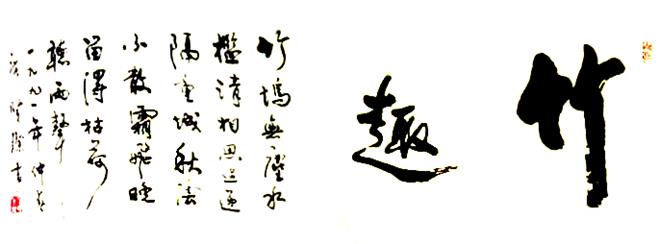 竹趣
竹塢無塵水
檻清相思迢遞
隔重城秋陰
不散霜飛晚
留得枯荷
聽雨聲
一九九一年仲